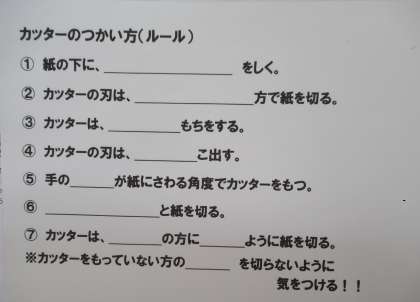 カッターのつかい方(ルール)
① 紙の下に、____________ をしく。
② カッターの刃は、____________方で紙を切る。
③ カッターは、________もちをする。
④ カッターの刃は、_______こ出す。
⑤ 手の_____が紙にさわる角度でカッターをもつ。
⑥ ____________と紙を切る。
⑦ カッターは、______の方に_____ように紙を切る。
※カッターをもっていない方の_____ を切らないように
気をつける!!